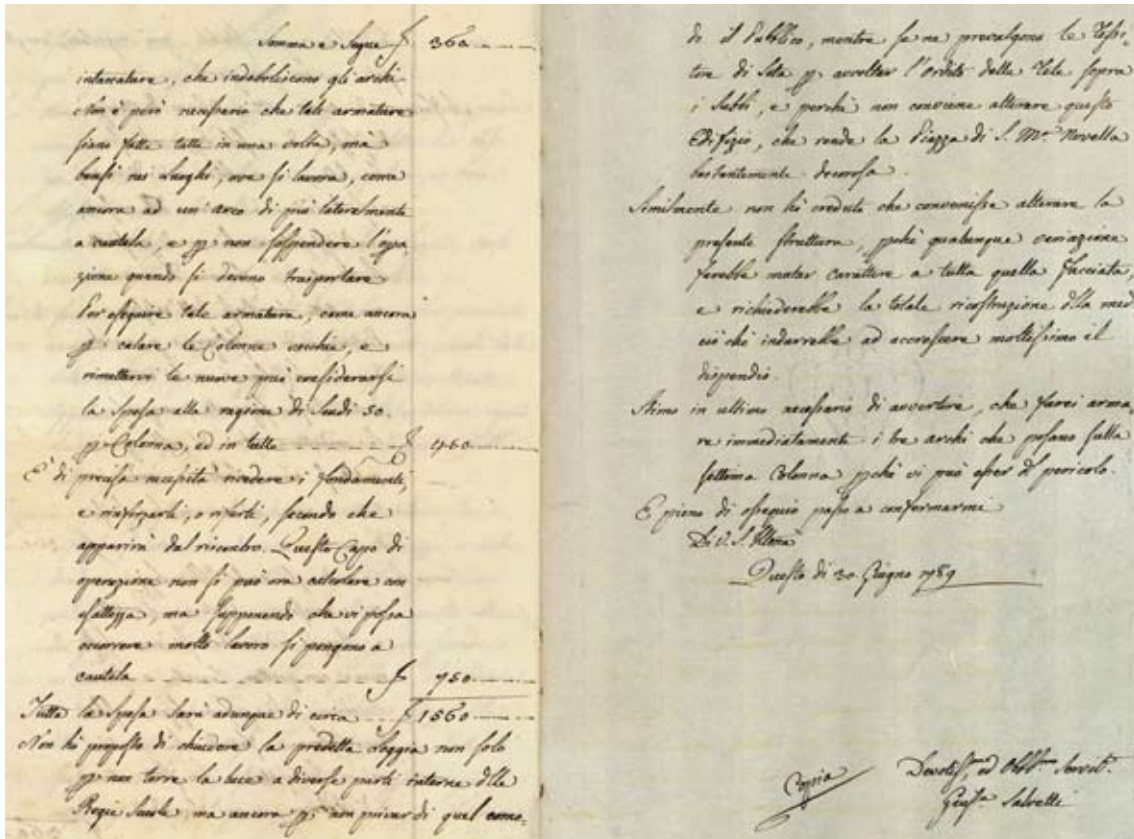 Somma e Segue £ 360
intaccature, che indeboliscono gli archi
Non è però necessario che tali armature
siano fatte tutte in una volta, ma
bensì nei luoghi, ove si lavora, come
ancora ad un' arco di più lateralmente
a cautela, e p non sospendere l'opa=
zione quando si devono trasportare
Per eseguire tale armatura, come ancora
p calare le Colonne vecchie, e
rimettervi le nuove può considerarsi
la spesa alla ragione di Scudi 50.
p Colonna, ed in tutto £ 450
E' di precisa necessità rivedere i fondamenti,
e rinforzarli, o rifarli, secondo che
apparirà dal riscontro. Questo Capo di
operazione non si può ora calcolare con
esattezza, ma supponendo che vi possa
occorrere molto lavoro si pongono a
cautela £ 750
Tutta la spesa sarà adunque di circa £ 1560
Non hò proposto di chiudere la predetta Loggia non solo
p non torre la luce a diverse parti interne dlle
Regie Scuole, ma ancora p non privar di quel como=
do il Pubblico, mentre se ne prevalgono le Tessi=
tore di Seta p avvoltar l'Ordito delle Tele sopra
i Subbi, e perchè non conviene alterare questo
Edifizio, che rende la Piazza di S. Mª. Novella
bastantemente decorosa.
Similmente non hò creduto che convenisse alterare la
presente struttura, pchè qualunque variazione
farebbe mutar carattere a tutta quella facciata,
e richiederebbe la totale ricostruzione dlla med
ciò che indurrebbe ad accrescere moltissimo il
dispendio.
Stimo in ultimo necessario di avvertire, che farei arma=
re immediatamente i tre archi che posano sulla
settima Colonna pchè vi può esser dl pericolo.
E pieno di ossequio passo a confermarmi
Di V. S. Illma
Questo di 30. Giugno 1789
Copia
Devotiss. ed Obb. Servit.
Giusª Salvetti